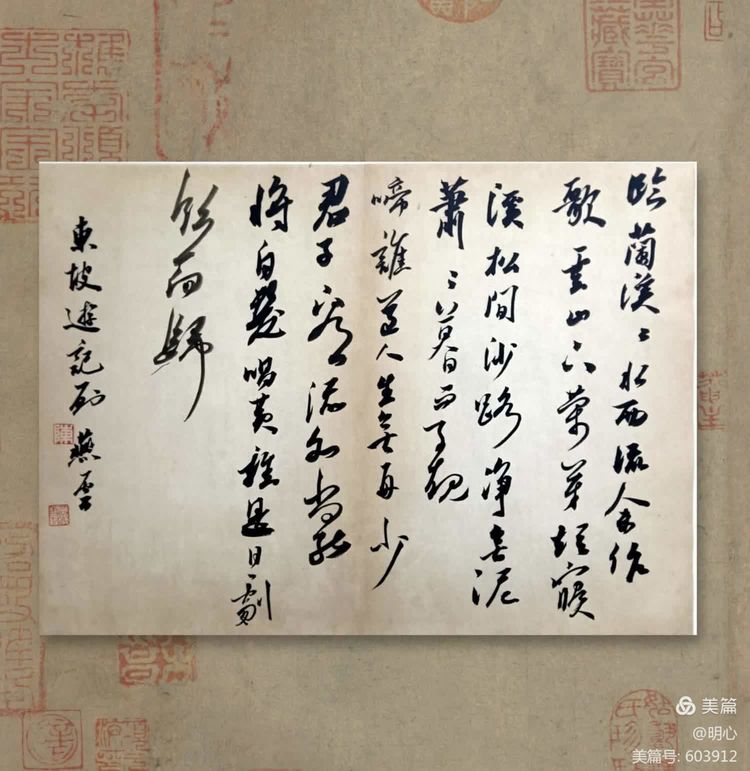 臨蘭溪〻水西流余作
歌云山下蘭芽短浸
溪松間沙路淨無泥
蕭〻暮雨子規
啼誰道人生無再少
君子看流水尚能
將白髮唱黃雞是日劇
飲而歸
東坡遊記 燕雲
美篇
@明心
美篇号: 603912